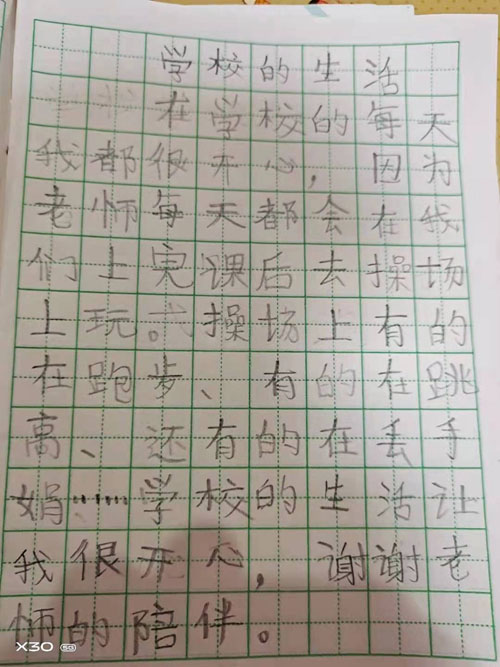 学校的生活
在学校的每天
我都很开心，因为
老师每天都会在我
们上完课后去操场
上玩。操场上有的
在跑步、有的在跳
高、还有的在丢手
娟……学校的生活让
我很开心，谢谢老
师的陪伴。
X30 5G